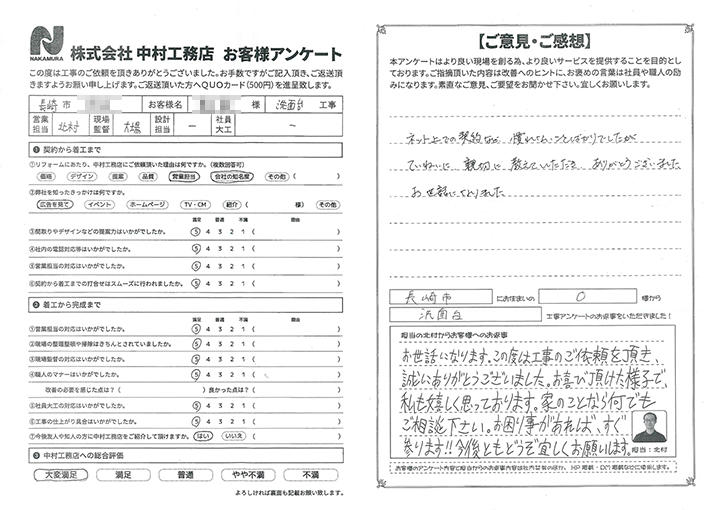 NAKAMURA
株式会社 中村工務店 お客様アンケート
この度は工事のご依頼を頂きありがとうございました。お手数ですがご記入頂き、ご返送頂
きますようお願い申し上げます。ご返送頂いた方へQUOカード(500円)を進呈致します。
長崎 市 お客様名 様 洗面台 工事
営業担当 北村 現場監督 大場 設計担当 ー 社員大工 ー
❶ 契約から着工まで
①リフォームにあたり、中村工務店にご依頼頂いた理由は何ですか。(複数回答可)
価格 デザイン 提案 品質 営業担当 会社の知名度 その他 ( )
②弊社を知ったきっかけは何ですか。
広告を見て イベント ホームページ TV・CM 紹介 ( 様) その他
満足 普通 不満 理由
③間取りやデザインなどの提案力はいかがでしたか。 5 4 3 2 1 ( )
④社内の電話対応等はいかがでしたか。 5 4 3 2 1 ( )
⑤営業担当の対応はいかがでしたか。 5 4 3 2 1 ( )
⑥契約から着工までの打合せはスムーズに行われましたか。 5 4 3 2 1 ( )
❷ 着工から完成まで
満足 普通 不満 理由
①営業担当の対応はいかがでしたか。 5 4 3 2 1 ( )
②現場の整理整頓や掃除はきちんとされていましたか。 5 4 3 2 1 ( )
③現場監督の対応はいかがでしたか。 5 4 3 2 1 ( )
④職人のマナーはいかがでしたか。 5 4 3 2 1 ( )
改善の必要を感じた点は?( ) 良かった点は?( )
⑤社員大工の対応はいかがでしたか。 5 4 3 2 1 ( )
⑥工事の仕上がり具合はいかがですか。 5 4 3 2 1 ( )
⑦今後友人や知人の方に中村工務店をご紹介して頂けますか。 はい いいえ ( )
❸ 中村工務店への総合評価
大変満足 満足 普通 やや不満 不満
よろしければ裏面も記載お願い致します。
【ご意見・ご感想】
本アンケートはより良い現場を創る為、より良いサービスを提供することを目的とし
ております。ご指摘頂いた内容は改善へのヒントに、お褒めの言葉は社員や職人の励
みになります。素直なご意見、ご要望をお聞かせ下さい。宜しくお願いします。
ネット上での契約など 慣れないことばかりでしたが
ていねいに 親切に 教えていただき ありがとうございました
お世話になりました
長崎市 にお住まいの O 様から
洗面台 工事アンケートのお返事をいただきました!
担当の北村からお客様へのお返事
お世話になります。この度は工事のご依頼を頂き、
誠にありがとうございました。お喜び頂けた様子で、
私も嬉しく思っております。家のことなら何でも
ご相談下さい。お困り事があれば、すぐ
参ります!!今後ともどうぞ宜しくお願いします。
担当:北村